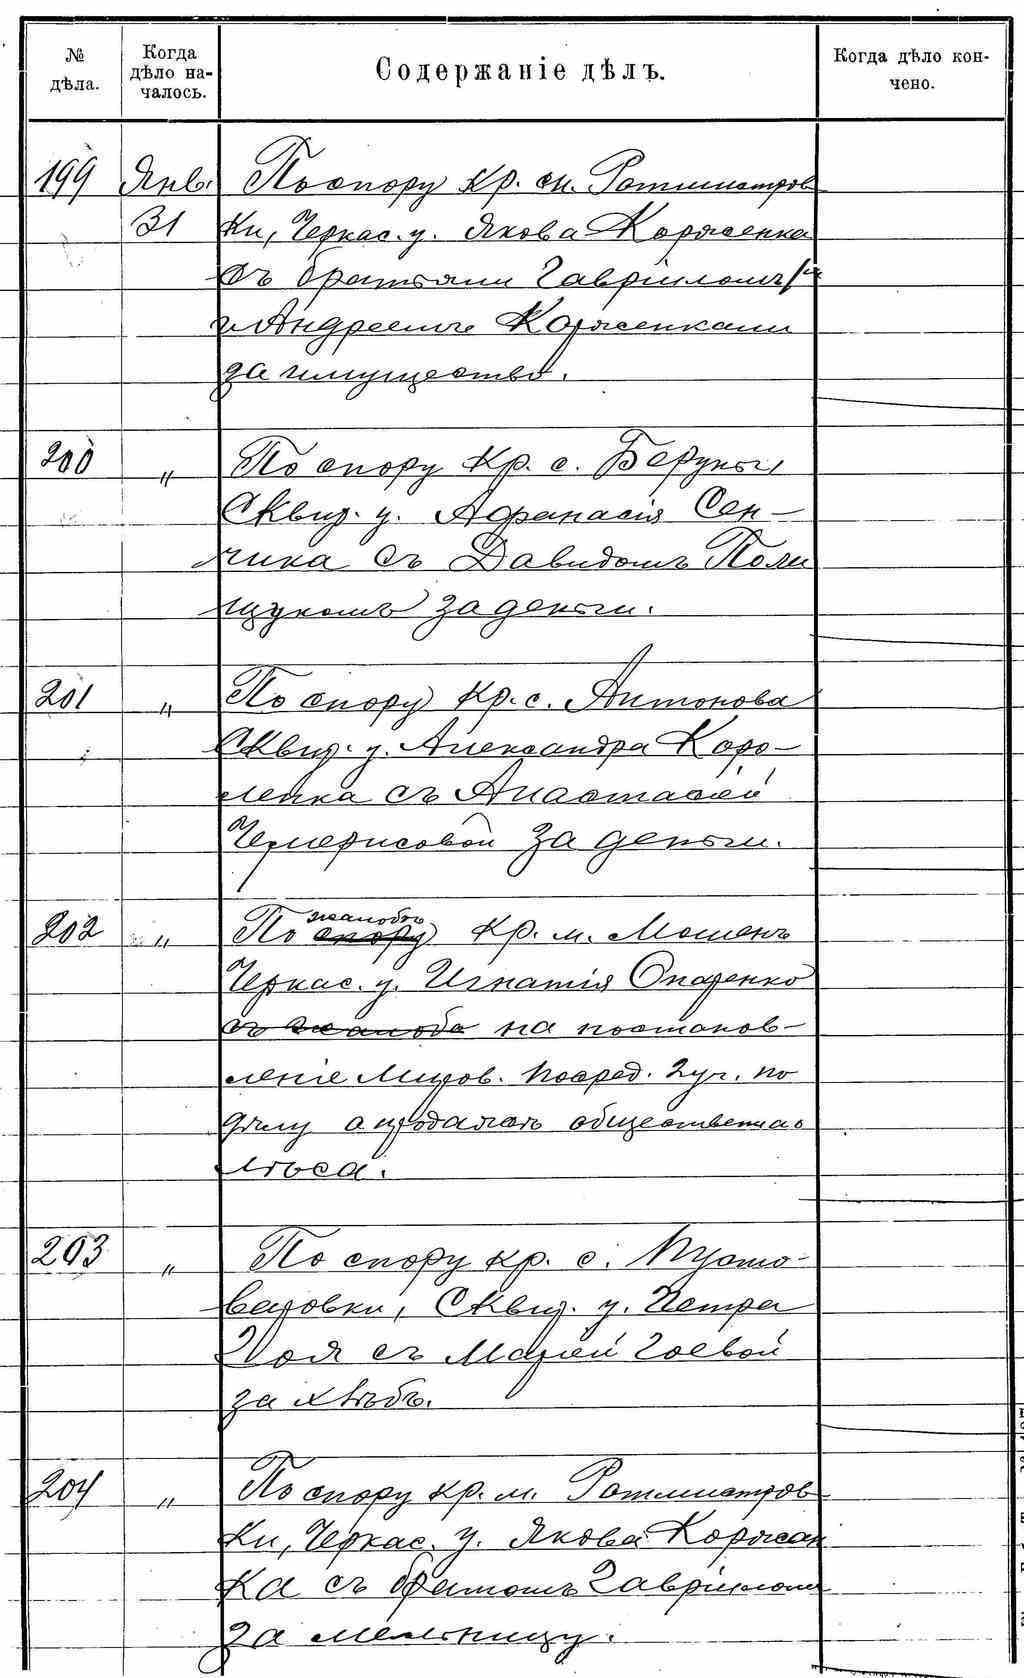 № дѣла.
Когда дѣло на-чалось.
Содержаніе дѣлъ.
Когда дѣло кон-чено.
199 Янв. По спору кр. м. Ротмистров
31 ки, Черкас. у. Якова Коряченка
съ братьями Гавріиломъ
и Андреемъ Коряченками
за имущество.
200 " По спору кр. с.
Сквир. у. Афанасія Сен-
чика съ Давидомъ Поли
щукомъ за деньги.
201 " По спору кр. с. Антонова
Сквир. у. Александра Коро-
ленка съ Анастасіей
Чемерисовой за деньги.
202 " По спору жалобѣ кр. м. Мошенъ
Черкас. у. Игнатія Опаренко
съ жалоба на постанов-
леніе Миров. Посред. 2 уч. по
дѣлу о продажѣ общественнаго
лѣса.
203 " По спору кр. с. Пусто-
варовки, Сквир. у. Петра
Гоя съ Маріей Гоевой
за хлѣбъ.
204 " По спору кр. м. Ротмистров
ки, Черкас. у. Якова Корячен
ка съ братомъ Гавріиломъ
за мельницу.